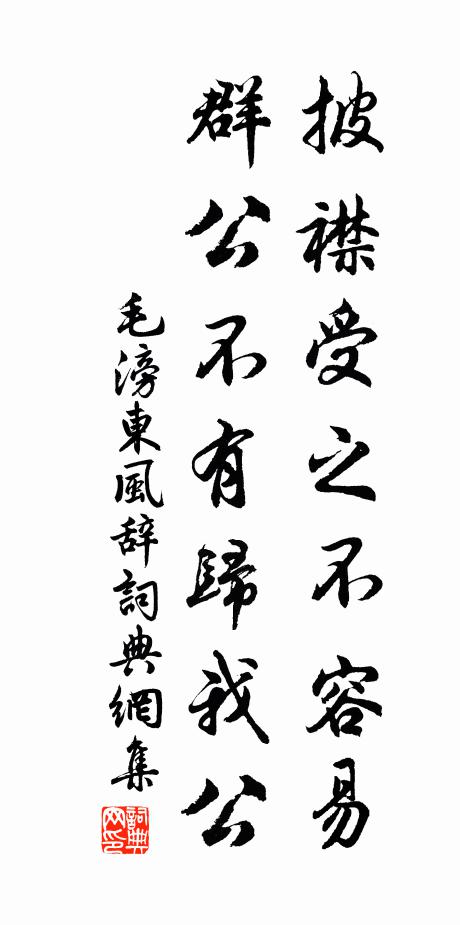 披襟受之不容易
群公不有歸我公
毛滂東風辞詞典網集
詞典网印